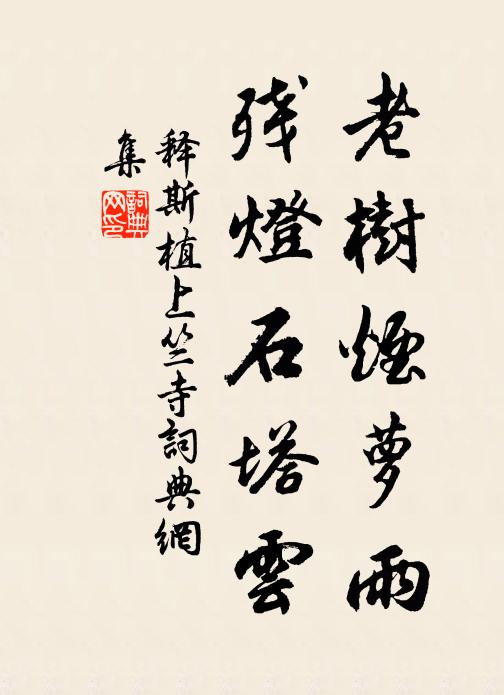 老樹煙蘿雨
残燈石塔雲
释斯植上竺寺詞典網
集
詞典網印